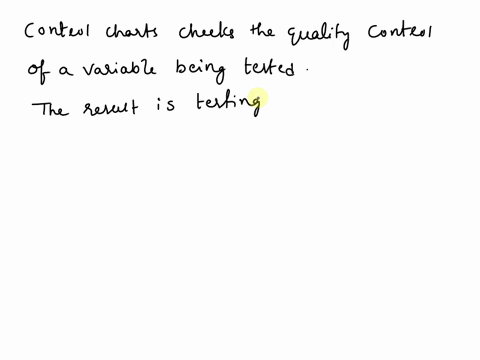 Control charts checks the quality control
of a variable being tested.
The result is testing